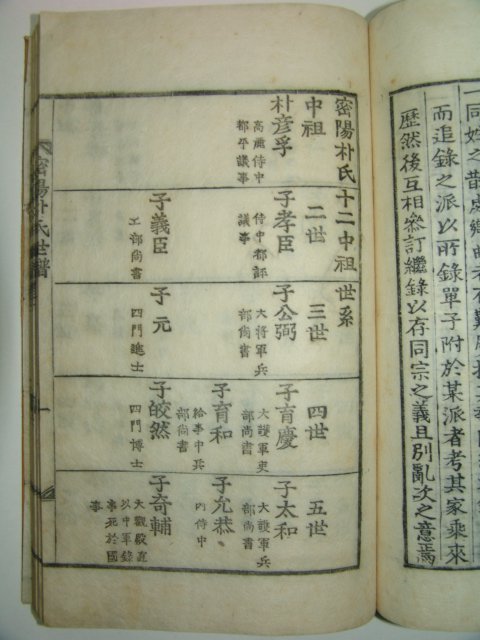 而追錄之派以所錄單子附於某派者考其家乘來
歷然後互相參訂繼錄以存同宗之義且別亂次之意焉
密陽朴氏十二中祖世系
中祖
朴彦孚
高麗侍中
都平議事
二世
子孝臣
侍中都評
議事
子義臣
工部尙書
三世
子公弼
大將軍兵
部尙書
子元
四門進士
四世
子育慶
大護軍吏
部尙書
子育和
給事中兵
部尙書
子皎然
四門博士
五世
子太和
大護軍兵
部尙書
子允恭
內侍中
子奇輔
大觀殿直
以中軍錄
事死於國
事
密陽朴氏世譜
一